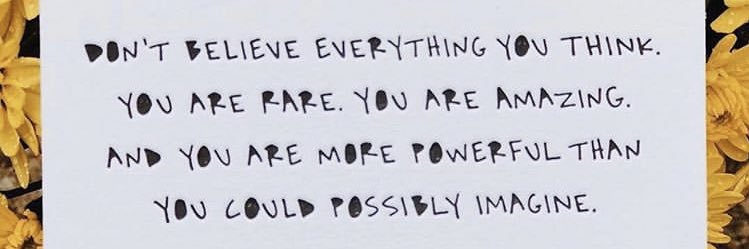 DON'T BELIEVE EVERYTHING YOU THINK.
YOU ARE RARE. YOU ARE AMAZING.
AND YOU ARE MORE POWERFUL THAN
YOU COULD POSSIBLY IMAGINE.